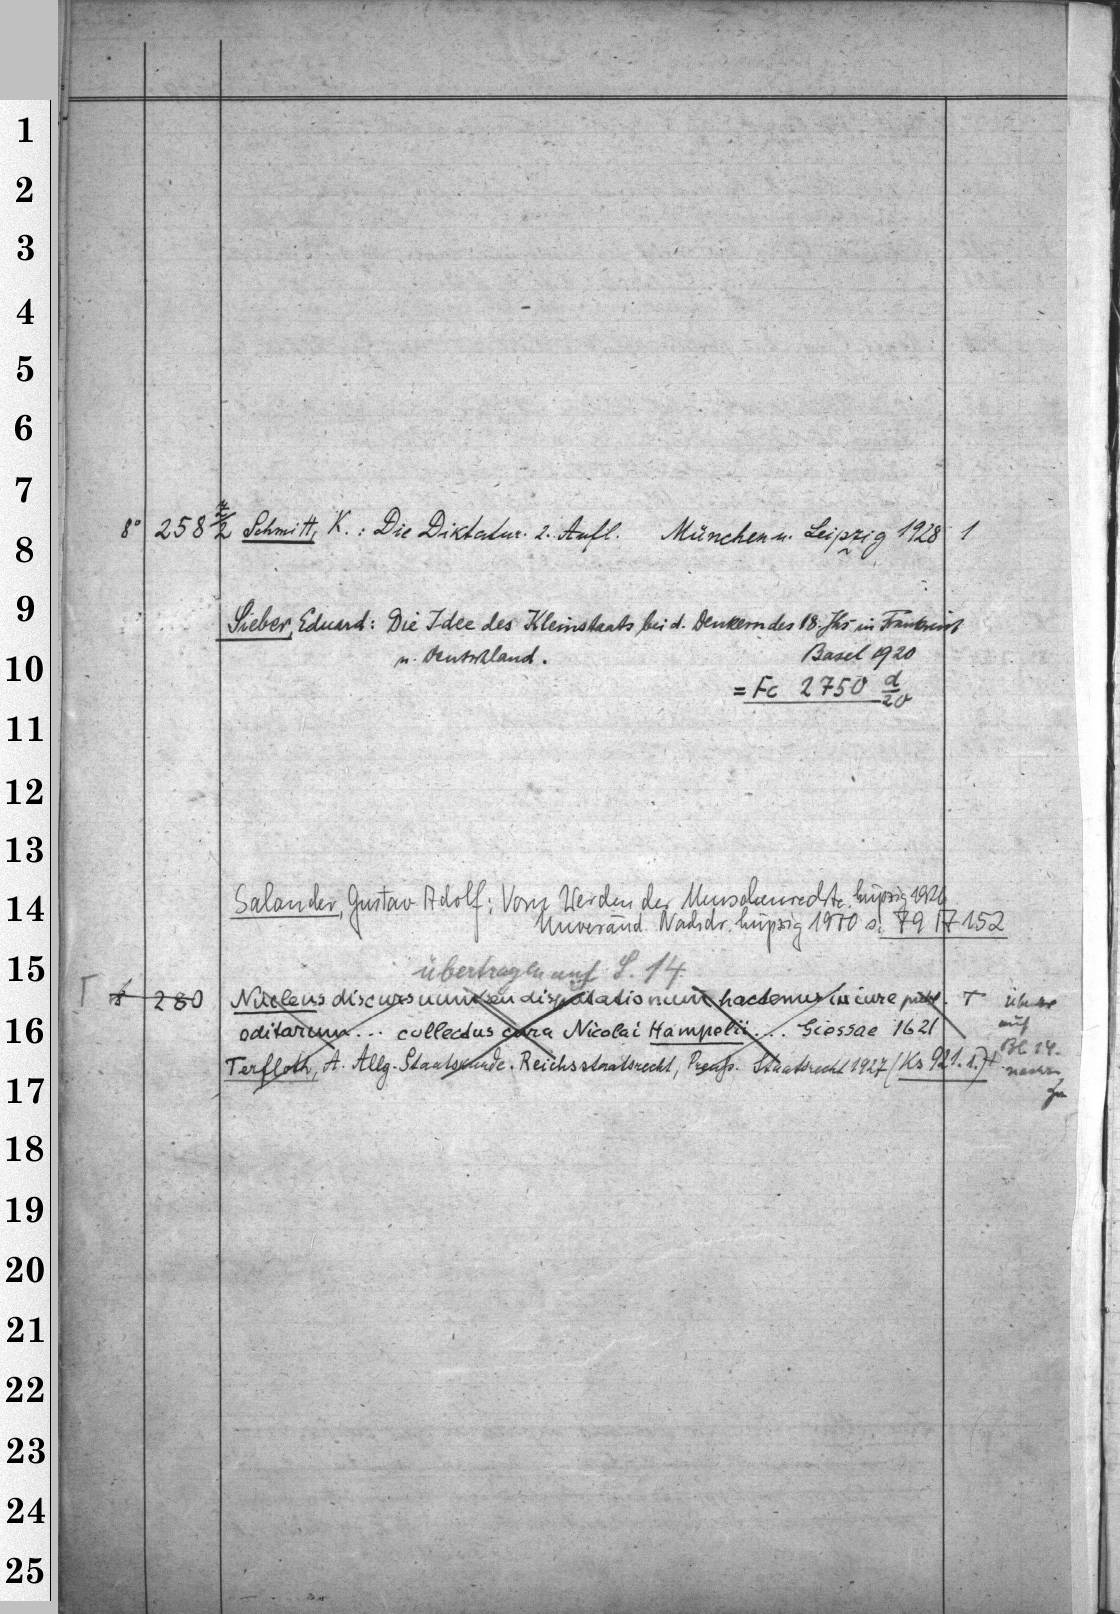 1
2
3
4
5
6
7
8° 258 4/2 Schmitt, K.: Die Diktatur. 2. Aufl. München u. Leipzig 1928 1
8
9
Sieber, Eduard: Die Idee des Kleinstaats bei d. Denkern des 18. Jhs in Frankreich
10
u. Deutschland. Basel 1920
= Fc 2750 d/20
11
12
13
14
Salander, Gustav Adolf: Vom Werden der Menschenrechte. Leipzig 1926
Unveränd. Nachdr. Leipzig 1970 s. 79 17 152
15
übertragen auf S. 14
T 8° 280 Nucleus discursuum seu disputationum hactenus in iure publ. T
16
editarum... collectus cura Nicolai Hampelii.... Giessae 1621 auf
Terfloth, A. Allg. Staatskunde. Reichsstaatsrecht, Preuß. Staatsrecht 1927 (Ks 921. 1.) Bl. 14.
17
18
19
20
21
22
23
24
25